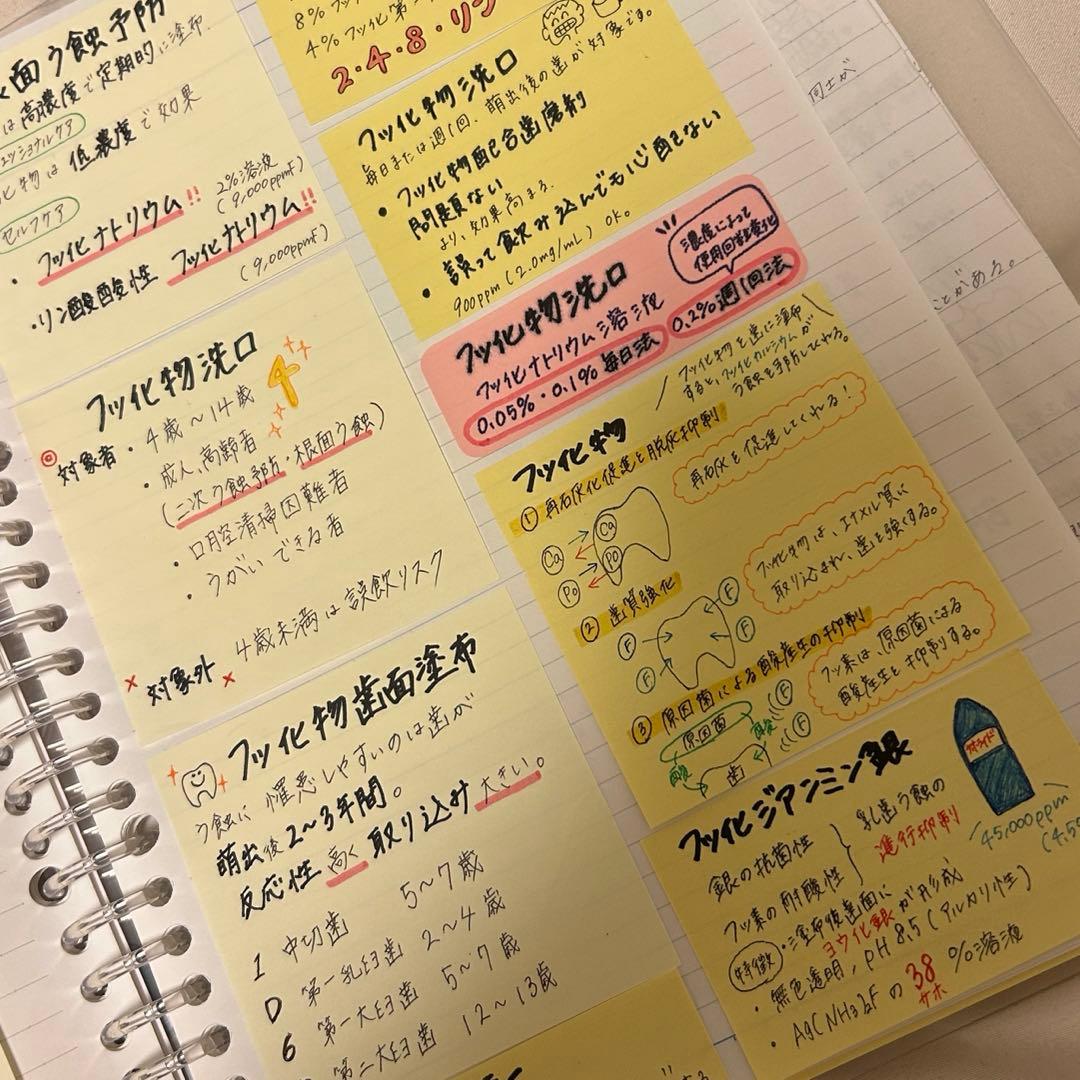 面う蝕予防
は高濃度で定期的に塗布。
ェッショナルケア
化物は低濃度で効果
セルフケア
・フッ化ナトリウム!! 2%溶液
(9,000ppmF)
・リン酸酸性フッ化ナトリウム!!
(9,000ppmF)
フッ化物洗口
◎対象者・4歳〜14歳
4
・成人、高齢者
(二次う蝕予防・根面う蝕)
・口腔清掃困難者
・うがいできる者
×対象外× 4歳未満は誤飲リスク
フッ化物歯面塗布
う蝕に罹患しやすいのは歯が
萌出後2〜3年間。
反応性高く取り込み大きい。
1 中切歯 5〜7歳
D 第一乳臼歯 2〜4歳
6 第一大臼歯 5〜7歳
第二大臼歯 12〜13歳
8%フッ
4%フッ化第一
2・4・8・リン
フッ化物洗口
毎日または週1回、萌出後の歯が対象です。
・フッ化物配合歯磨剤
問題ない
より、効果高まる。
・誤って飲み込んでも心配ない
900ppm(2.0mg/mL) OK。
フッ化物洗口
濃度によって
使用回数変化
フッ化ナトリウム溶液
0.05%・0.1%毎日法 0.2%週1回法
フッ化物
フッ化物を歯に塗布
すると、フッ化カルシウムが
う蝕を予防してくれる。
①再石灰化促進と脱灰抑制
再石灰を促進してくれる!
Ca
Ca
Po
Po
②歯質強化
フッ化物は、エナメル質に
取り込まれ、歯を強くする。
F
F
F
F
③原因菌による酸産生の抑制
フッ素は、原因菌による
酸産生を抑制する。
原因菌
酸
酸
F
F
歯
フッ化ジアンミン銀
銀の抗菌性
フッ素の耐酸性
乳歯う蝕の
進行抑制
45,000ppm
特徴
・塗布後歯面に
ヨウ化銀が形成
・無色透明、pH 8.5(アルカリ性)
・Ag(NH3)2Fの38%溶液
サホ
同士が
ことがある。